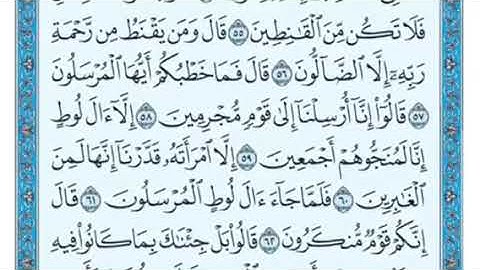 فَلَا تَكُن مِّنَ ٱلْقَٰنِطِينَ ٥٥ قَالَ وَمَن يَقْنَطُ مِن رَّحْمَةِ
رَبِّهِۦٓ إِلَّا ٱلضَّآلُّونَ ٥٦ قَالَ فَمَا خَطْبُكُمْ أَيُّهَا ٱلْمُرْسَلُونَ
٥٧ قَالُوٓا۟ إِنَّآ أُرْسِلْنَآ إِلَىٰ قَوْمٍ مُّجْرِمِينَ ٥٨ إِلَّآ ءَالَ لُوطٍ
إِنَّا لَمُنَجُّوهُمْ أَجْمَعِينَ ٥٩ إِلَّا ٱمْرَأَتَهُۥ قَدَّرْنَآ إِنَّهَا لَمِنَ
ٱلْغَٰبِرِينَ ٦٠ فَلَمَّا جَآءَ ءَالَ لُوطٍ ٱلْمُرْسَلُونَ ٦١ قَالَ
إِنَّكُمْ قَوْمٌ مُّنكَرُونَ ٦٢ قَالُوا۟ بَلْ جِئْنَٰكَ بِمَا كَانُوا۟ فِيهِ